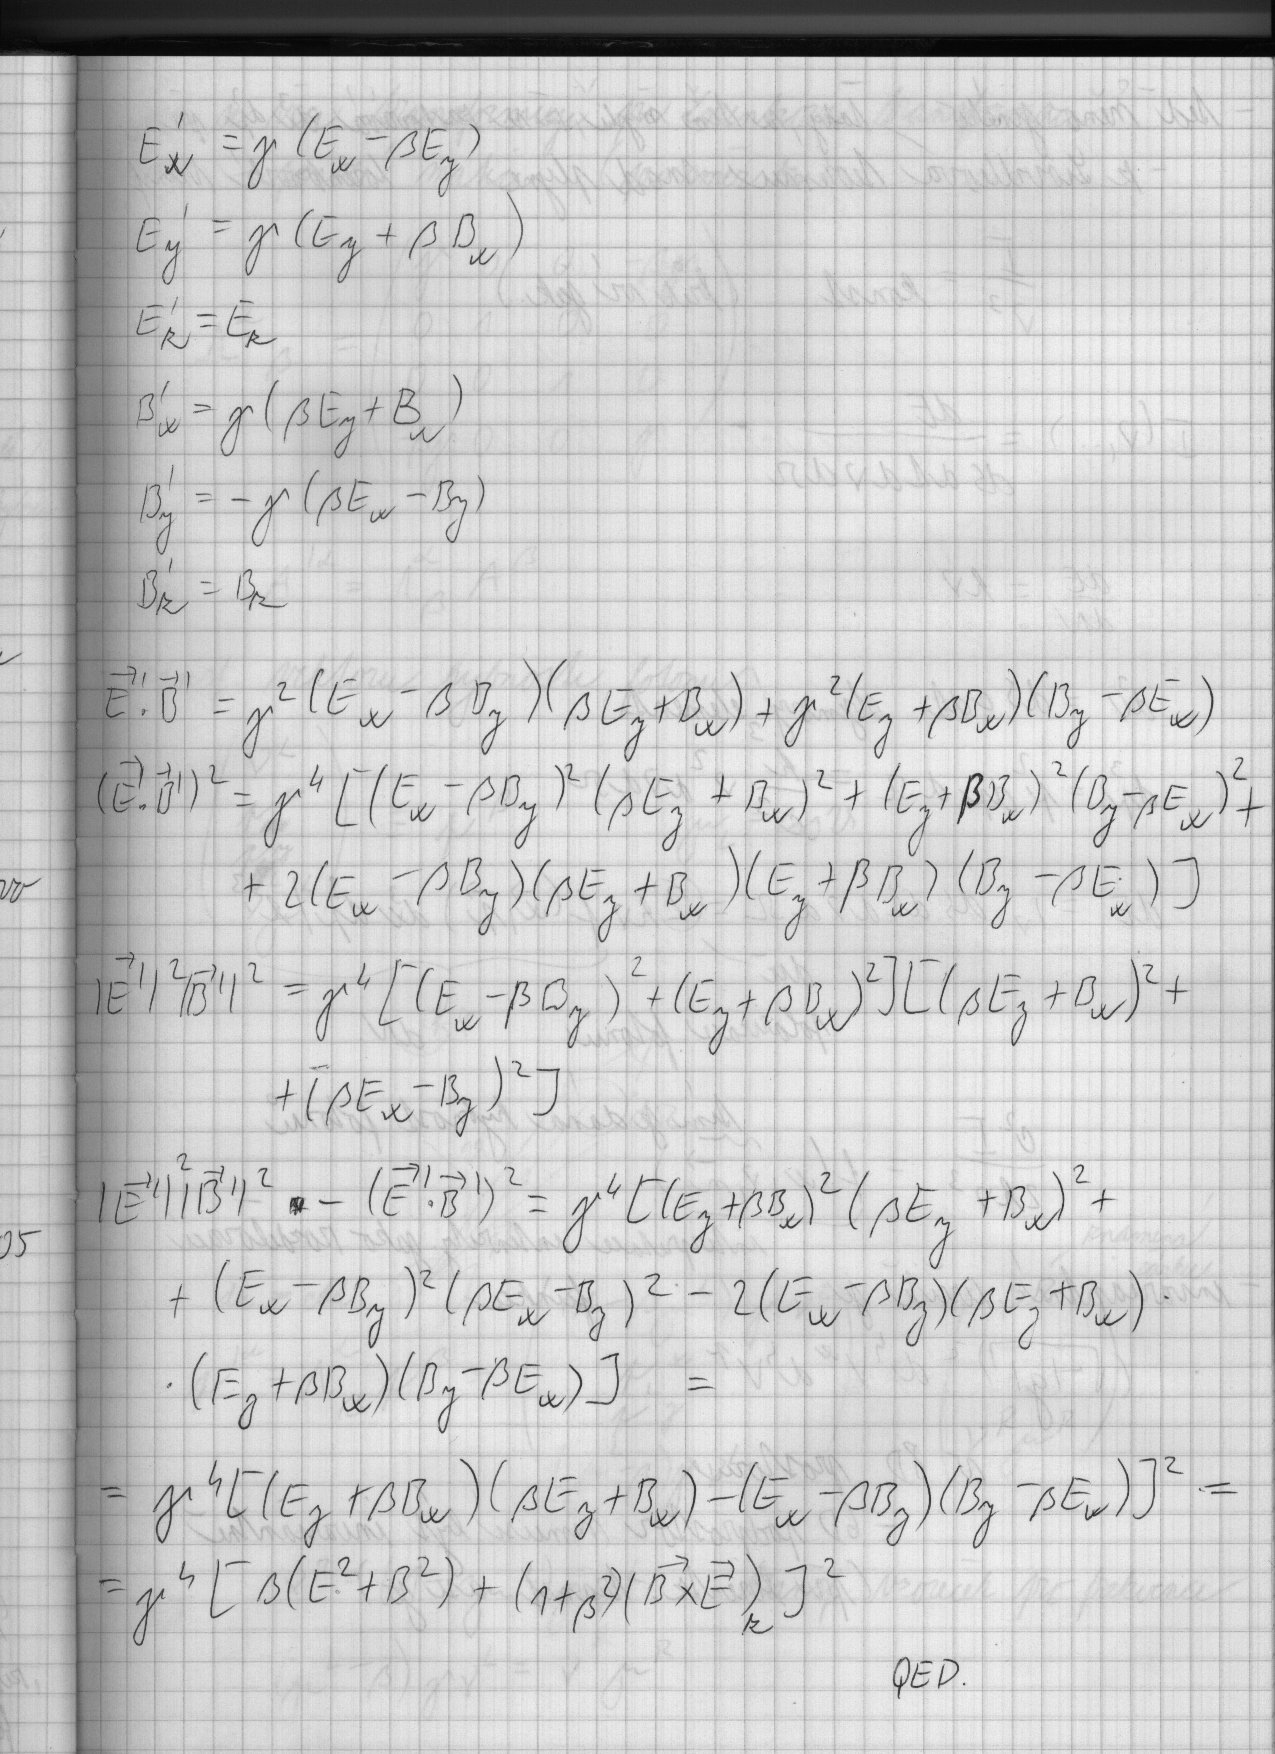 E'ₓ = γ (Eₓ − βE_y)
E_y' = γ (E_y + βBₓ)
E'_z = E_z
B'ₓ = γ (βE_y + Bₓ)
B'_y = −γ (βEₓ − B_y)
B'_z = B_z
E⃗'·B⃗' = γ² (Eₓ − βB_y)(βE_y + Bₓ) + γ² (E_y + βBₓ)(B_y − βEₓ)
(E⃗'·B⃗')² = γ⁴ [(Eₓ − βB_y)² (βE_y + Bₓ)² + (E_y + βBₓ)² (B_y − βEₓ)² +
+ 2(Eₓ − βB_y)(βE_y + Bₓ)(E_y + βBₓ)(B_y − βEₓ)]
|E⃗'|²|B⃗'|² = γ⁴ [(Eₓ − βB_y)² + (E_y + βBₓ)²][(βE_y + Bₓ)² +
+ (βEₓ − B_y)²]
|E⃗'|²|B⃗'|² − (E⃗'·B⃗')² = γ⁴ [(E_y + βBₓ)² (βE_y + Bₓ)² +
+ (Eₓ − βB_y)² (βEₓ − B_y)² − 2(Eₓ − βB_y)(βE_y + Bₓ) ·
· (E_y + βBₓ)(B_y − βEₓ)] =
= γ⁴ [(E_y + βBₓ)(βE_y + Bₓ) − (Eₓ − βB_y)(B_y − βEₓ)]² =
= γ⁴ [β(E² + B²) + (1+β²)(B⃗×E⃗)_z]²
QED.